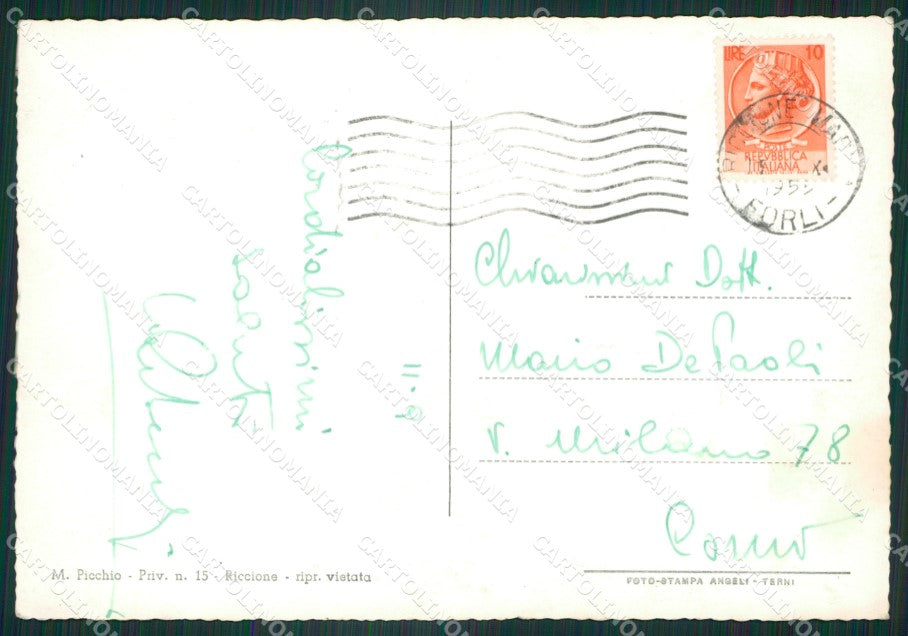 LIRE 10
POSTE
REPVBBLICA
ITALIANA
RICCIONE MARE
X
195
- FORLI -
Cordialissimi
saluti
11.9
Chiarissimo Dott.
Mario De Paoli
v. Milano 78
Como
M. Picchio - Priv. n. 15 - Riccione - ripr. vietata
FOTO-STAMPA ANGELI - TERNI
CARTOLINOMANIA